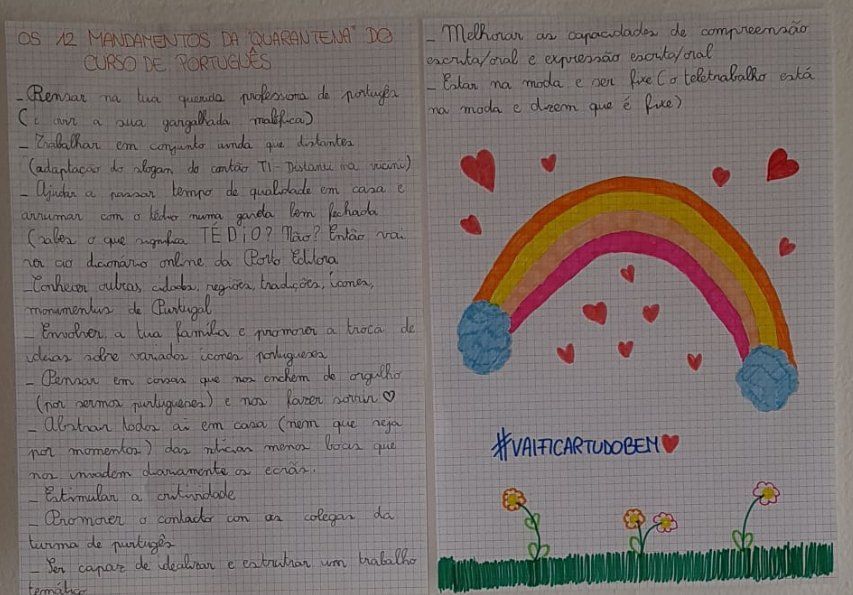 OS 12 MANDAMENTOS DA "QUARANTENA" DO
CURSO DE PORTUGUÊS
- Pensar na tua querida professora de portugês
(i ouvir a sua gargalhada maléfica)
- Trabalhar em conjunto ainda que distantes
(adaptação do slogan do cantão TI - Distanti ma vicini)
- Ajudar a passar tempo de qualidade em casa e
arrumar com o tédio numa gaveta bem fechada
(sabes o que significa TÉDIO? Não? Então vai
ver ao dicionário online da Porto Editora
- Conhecer outras cidades, regiões, tradições, ícones,
monumentos de Portugal
- Envolver a tua família e promover a troca de
ideias sobre variados ícones portugueses
- Pensar em coisas que nos enchem de orgulho
(por sermos portugueses) e nos fazer sorrir ♡
- Abstrair todos aí em casa (nem que seja
por momentos) das notícias menos boas que
nos invadem diariamente os ecrãs.
- Estimular a criatividade
- Promover o contacto com as colegas da
turma de portugês
- Ser capaz de idealizar e estruturar um trabalho
temático
- Melhorar as capacidades de compreensão
escrita/oral e expressão escrita/oral
- Estar na moda e ser fixe (o teletrabalho está
na moda e dizem que é fixe)
#VAIFICARTUDOBEM♥